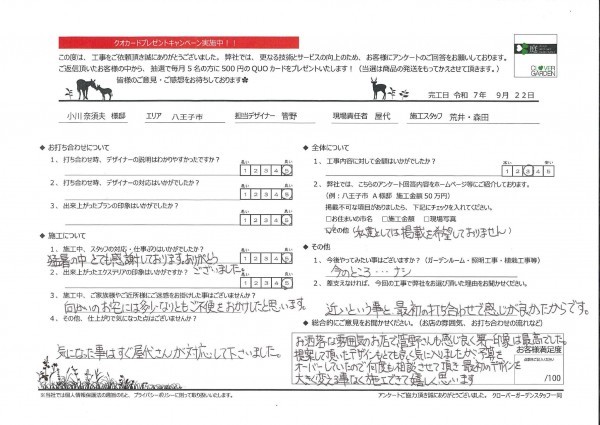 クオカードプレゼントキャンペーン実施中!!
この度は、工事をご依頼頂き誠にありがとうございました。弊社では、更なる技術とサービスの向上のため、お客様にアンケートのご回答をお願いしております。
ご返信頂いたお客様の中から、抽選で毎月5名の方に500円のQUOカードをプレゼントいたします!(当選は商品の発送をもってかえさせて頂きます。)
皆様のご意見・ご感想をお待ちしております✿
庭
CLOVER GARDEN
完工日 令和 7年 9月 22日
小川 奈須夫 様邸 エリア 八王子市 担当デザイナー 菅野 現場責任者 屋代 施工スタッフ 荒井・森田
◆ お打ち合わせについて
1、打ち合わせ時、デザイナーの説明はわかりやすかったですか?
悪い 良い
1 2 3 4 5
2、打ち合わせ時、デザイナーの対応はいかがでしたか?
1 2 3 4 5
3、出来上がったプランの印象はいかがでしたか?
1 2 3 4 5
◆ 施工について
1、施工中、スタッフの対応・仕事ぶりはいかがでしたか?
1 2 3 4 5
猛暑の中 とても感謝しております。ありがとう
ございました。
2、出来上がったエクステリアの印象はいかがですか?
1 2 3 4 5
3、施工中、ご家族様やご近所様にご迷惑をお掛けした事はございませんか?
向かいのお宅には多少なりともご不便をおかけしたと思います。
4、その他、仕上がりで気になった点はございませんか?
気になった事はすぐ屋代さんが対応して下さいました。
◆ 全体について
1、工事内容に対して金額はいかがでしたか?
高い 安い
1 2 3 4 5
2、弊社では、こちらのアンケート回答内容をホームページ等にご紹介しております。
(例:八王子市 A様邸 施工金額50万円)
掲載不可な項目がありましたら、下記にチェックを入れてください。
□お住まいの市名 □施工金額 □現場写真
その他(私達としては掲載を希望しておりません)
◆ その他
1、今後やってみたい事はございますか?(ガーデンルーム・照明工事・植栽工事等)
今のところ…ナシ
2、差支えなければ、今回の工事で弊社をお選び頂いた理由をお聞かせください。
近いという事と最初の打ち合わせで感じが良かったからです。
◆ 総合的にご意見をお聞かせください。(お店の雰囲気、お打ち合わせの流れなど)
お洒落な雰囲気のお店で菅野さんも感じ良く第一印象は最高でした。
提案して頂いたデザインもとても良く気に入りましたが予算を
オーバーしていたので何度も相談させて頂き最初のデザインを
大きく変える事なく施工できて嬉しく思います
お客様満足度
/100
※当社では個人情報保護法の趣旨のもと、プライバシーポリシーに則って取り扱いいたします。
アンケートご協力頂き誠にありがとうございました。クローバーガーデンスタッフ一同